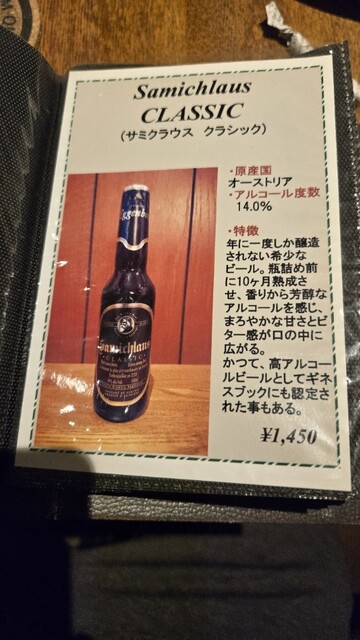 Samichlaus
CLASSIC
（サミクラウス　クラシック）
・原産国
オーストリア
・アルコール度数
14.0%
・特徴
年に一度しか醸造
されない希少な
ビール。瓶詰め前
に10ヶ月熟成さ
せ、香りから芳醇な
アルコールを感じ、
まろやかな甘さとビ
ター感が口の中に
広がる。
かつて、高アルコー
ルビールとしてギネ
スブックにも認定さ
れた事もある。
¥1,450
Samichlaus
CLASSIC